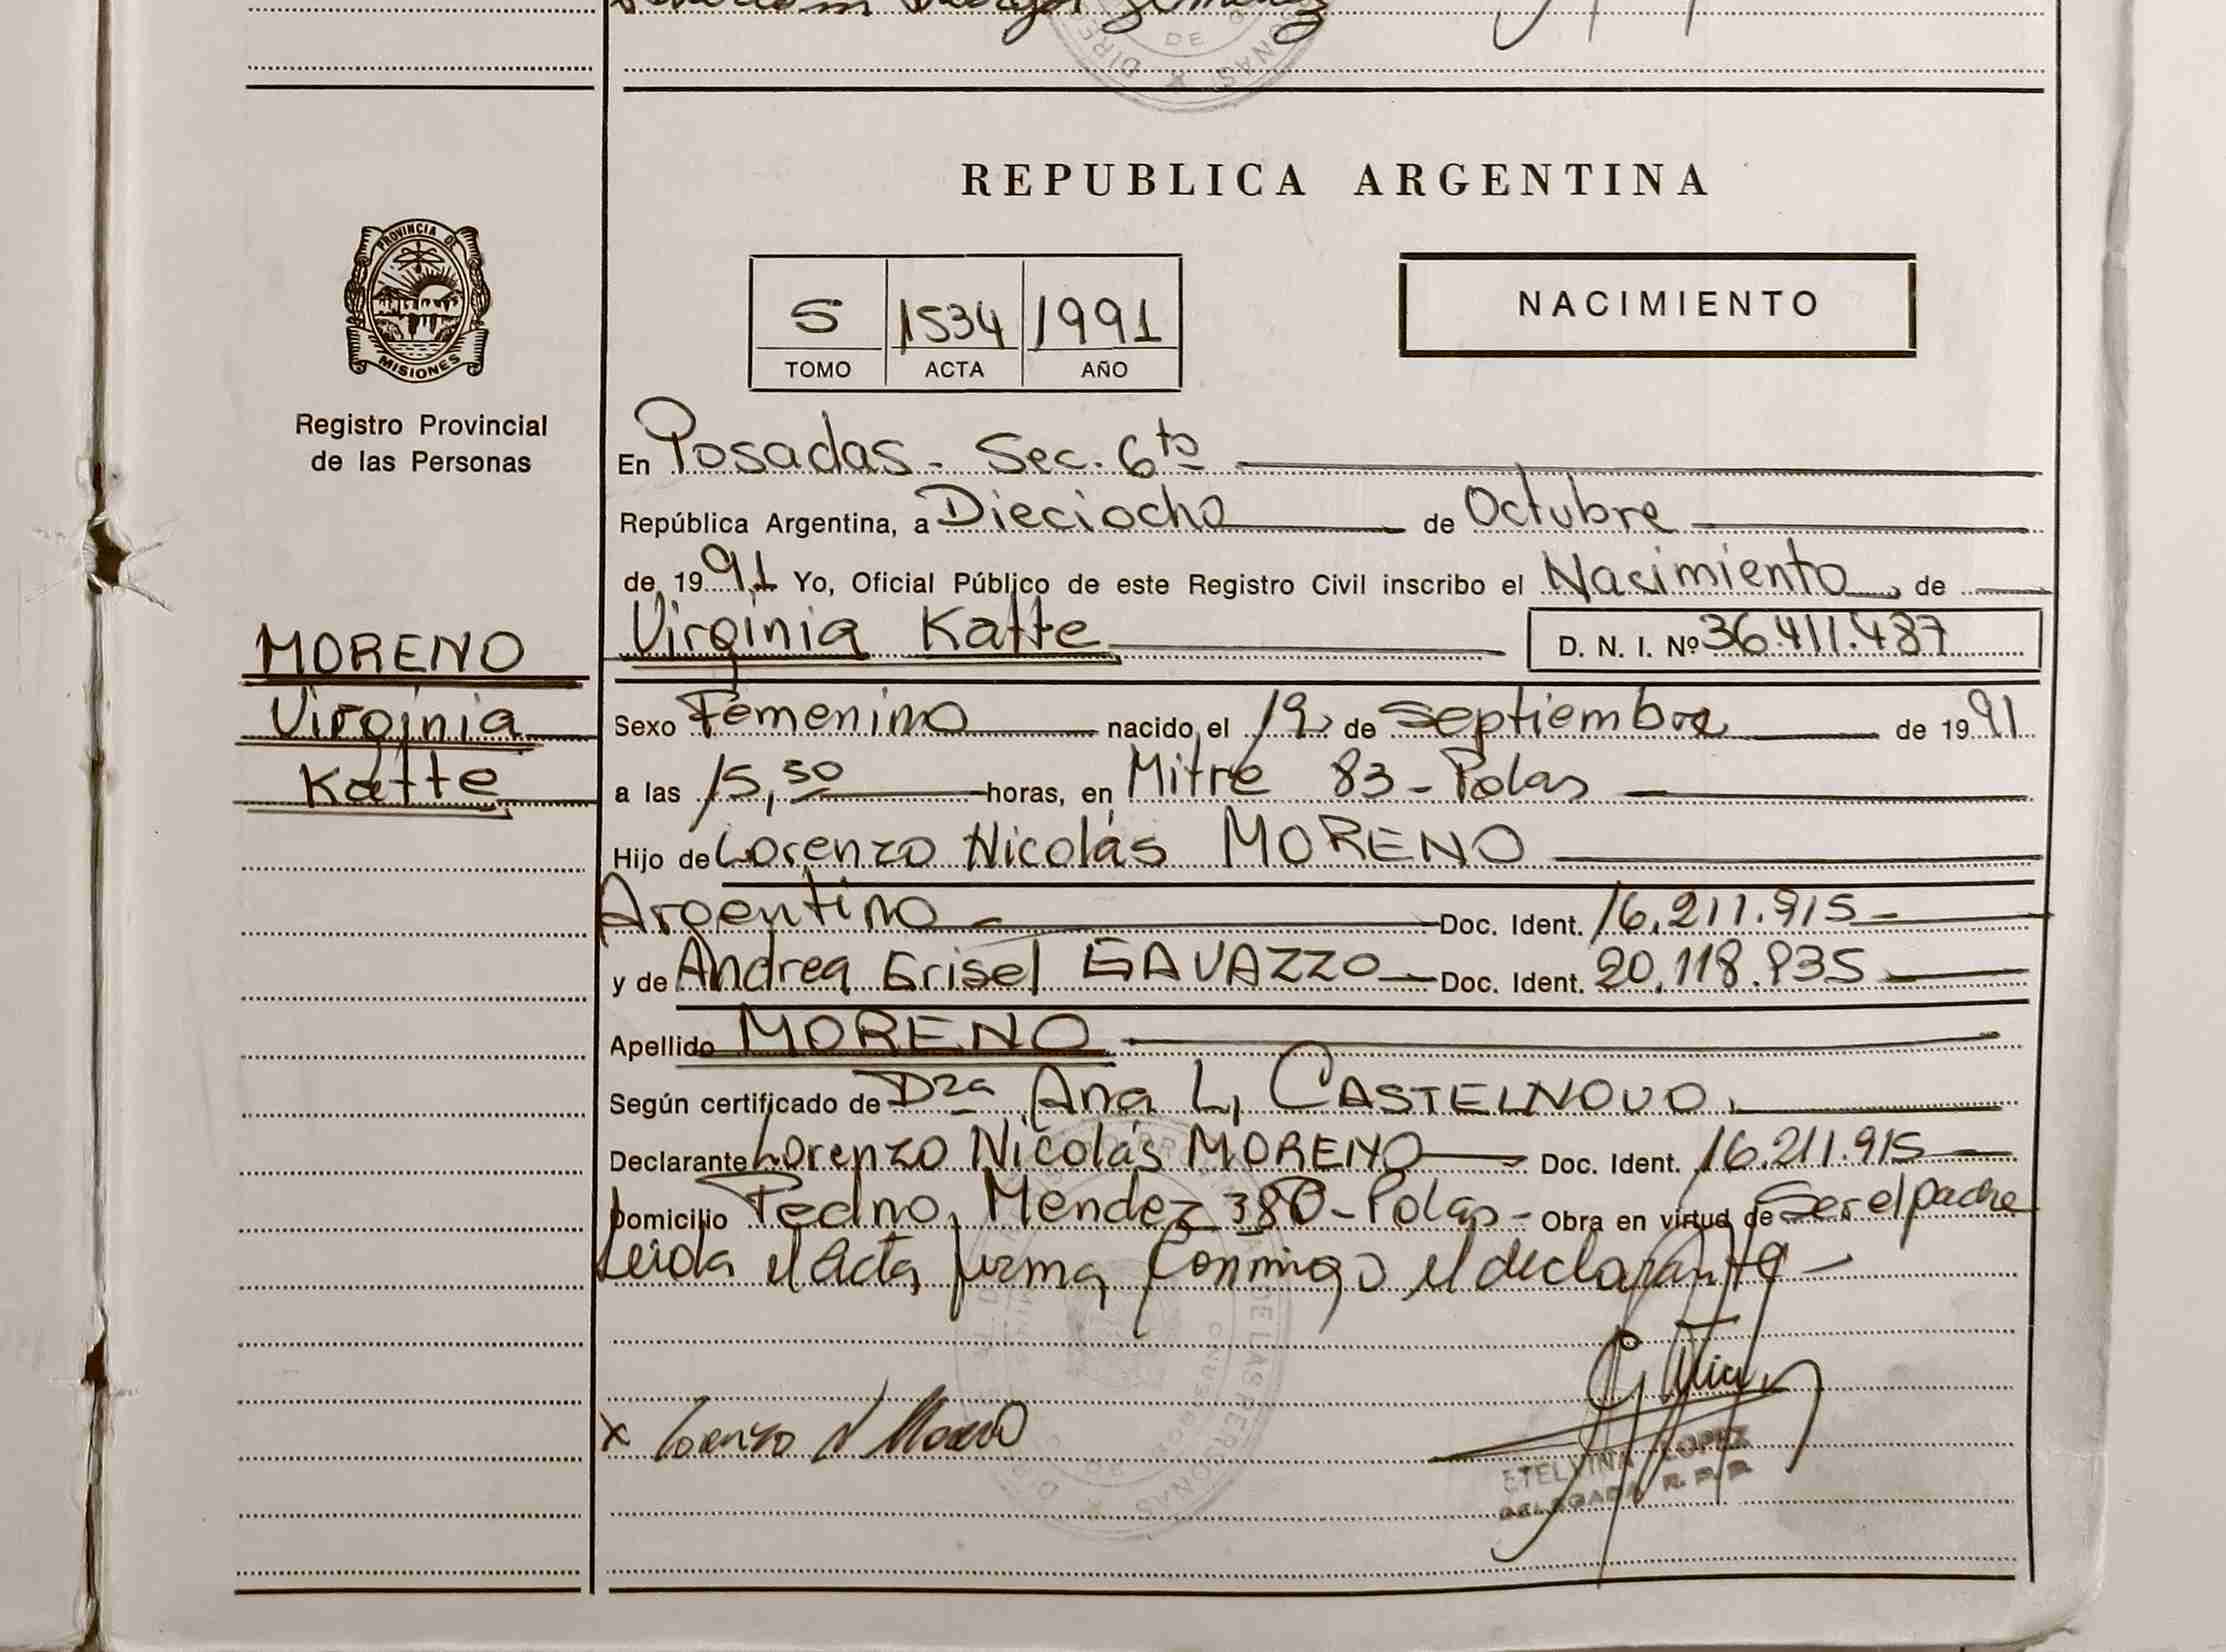 DE
REPUBLICA ARGENTINA
PROVINCIA DE
MISIONES
Registro Provincial
de las Personas
MORENO
Virginia
Katte
5 1534 1991
TOMO ACTA AÑO
NACIMIENTO
En Posadas - Sec. 6ta
República Argentina, a Dieciocho de Octubre
de 1991 Yo, Oficial Público de este Registro Civil inscribo el Nacimiento de
Virginia Katte D. N. I. Nº 36.411.487
Sexo Femenino nacido el 19 de Septiembre de 1991
a las 15,30 horas, en Mitre 83 - Pdas
Hijo de Lorenzo Nicolás MORENO
Argentino - Doc. Ident. 16.211.915 -
y de Andrea Grisel GAVAZZO - Doc. Ident. 20.118.935
Apellido MORENO
Según certificado de Dra Ana L, CASTELNOVO.
Declarante Lorenzo Nicolás MORENO Doc. Ident. 16.211.915
Domicilio Pedro Mendez 380 - Pdas - Obra en virtud de Ser el padre
Leida el Acta firma conmigo el declarante -
x Lorenzo N Moreno
ETELVINA LOPEZ
DELEGADA R. P. P.